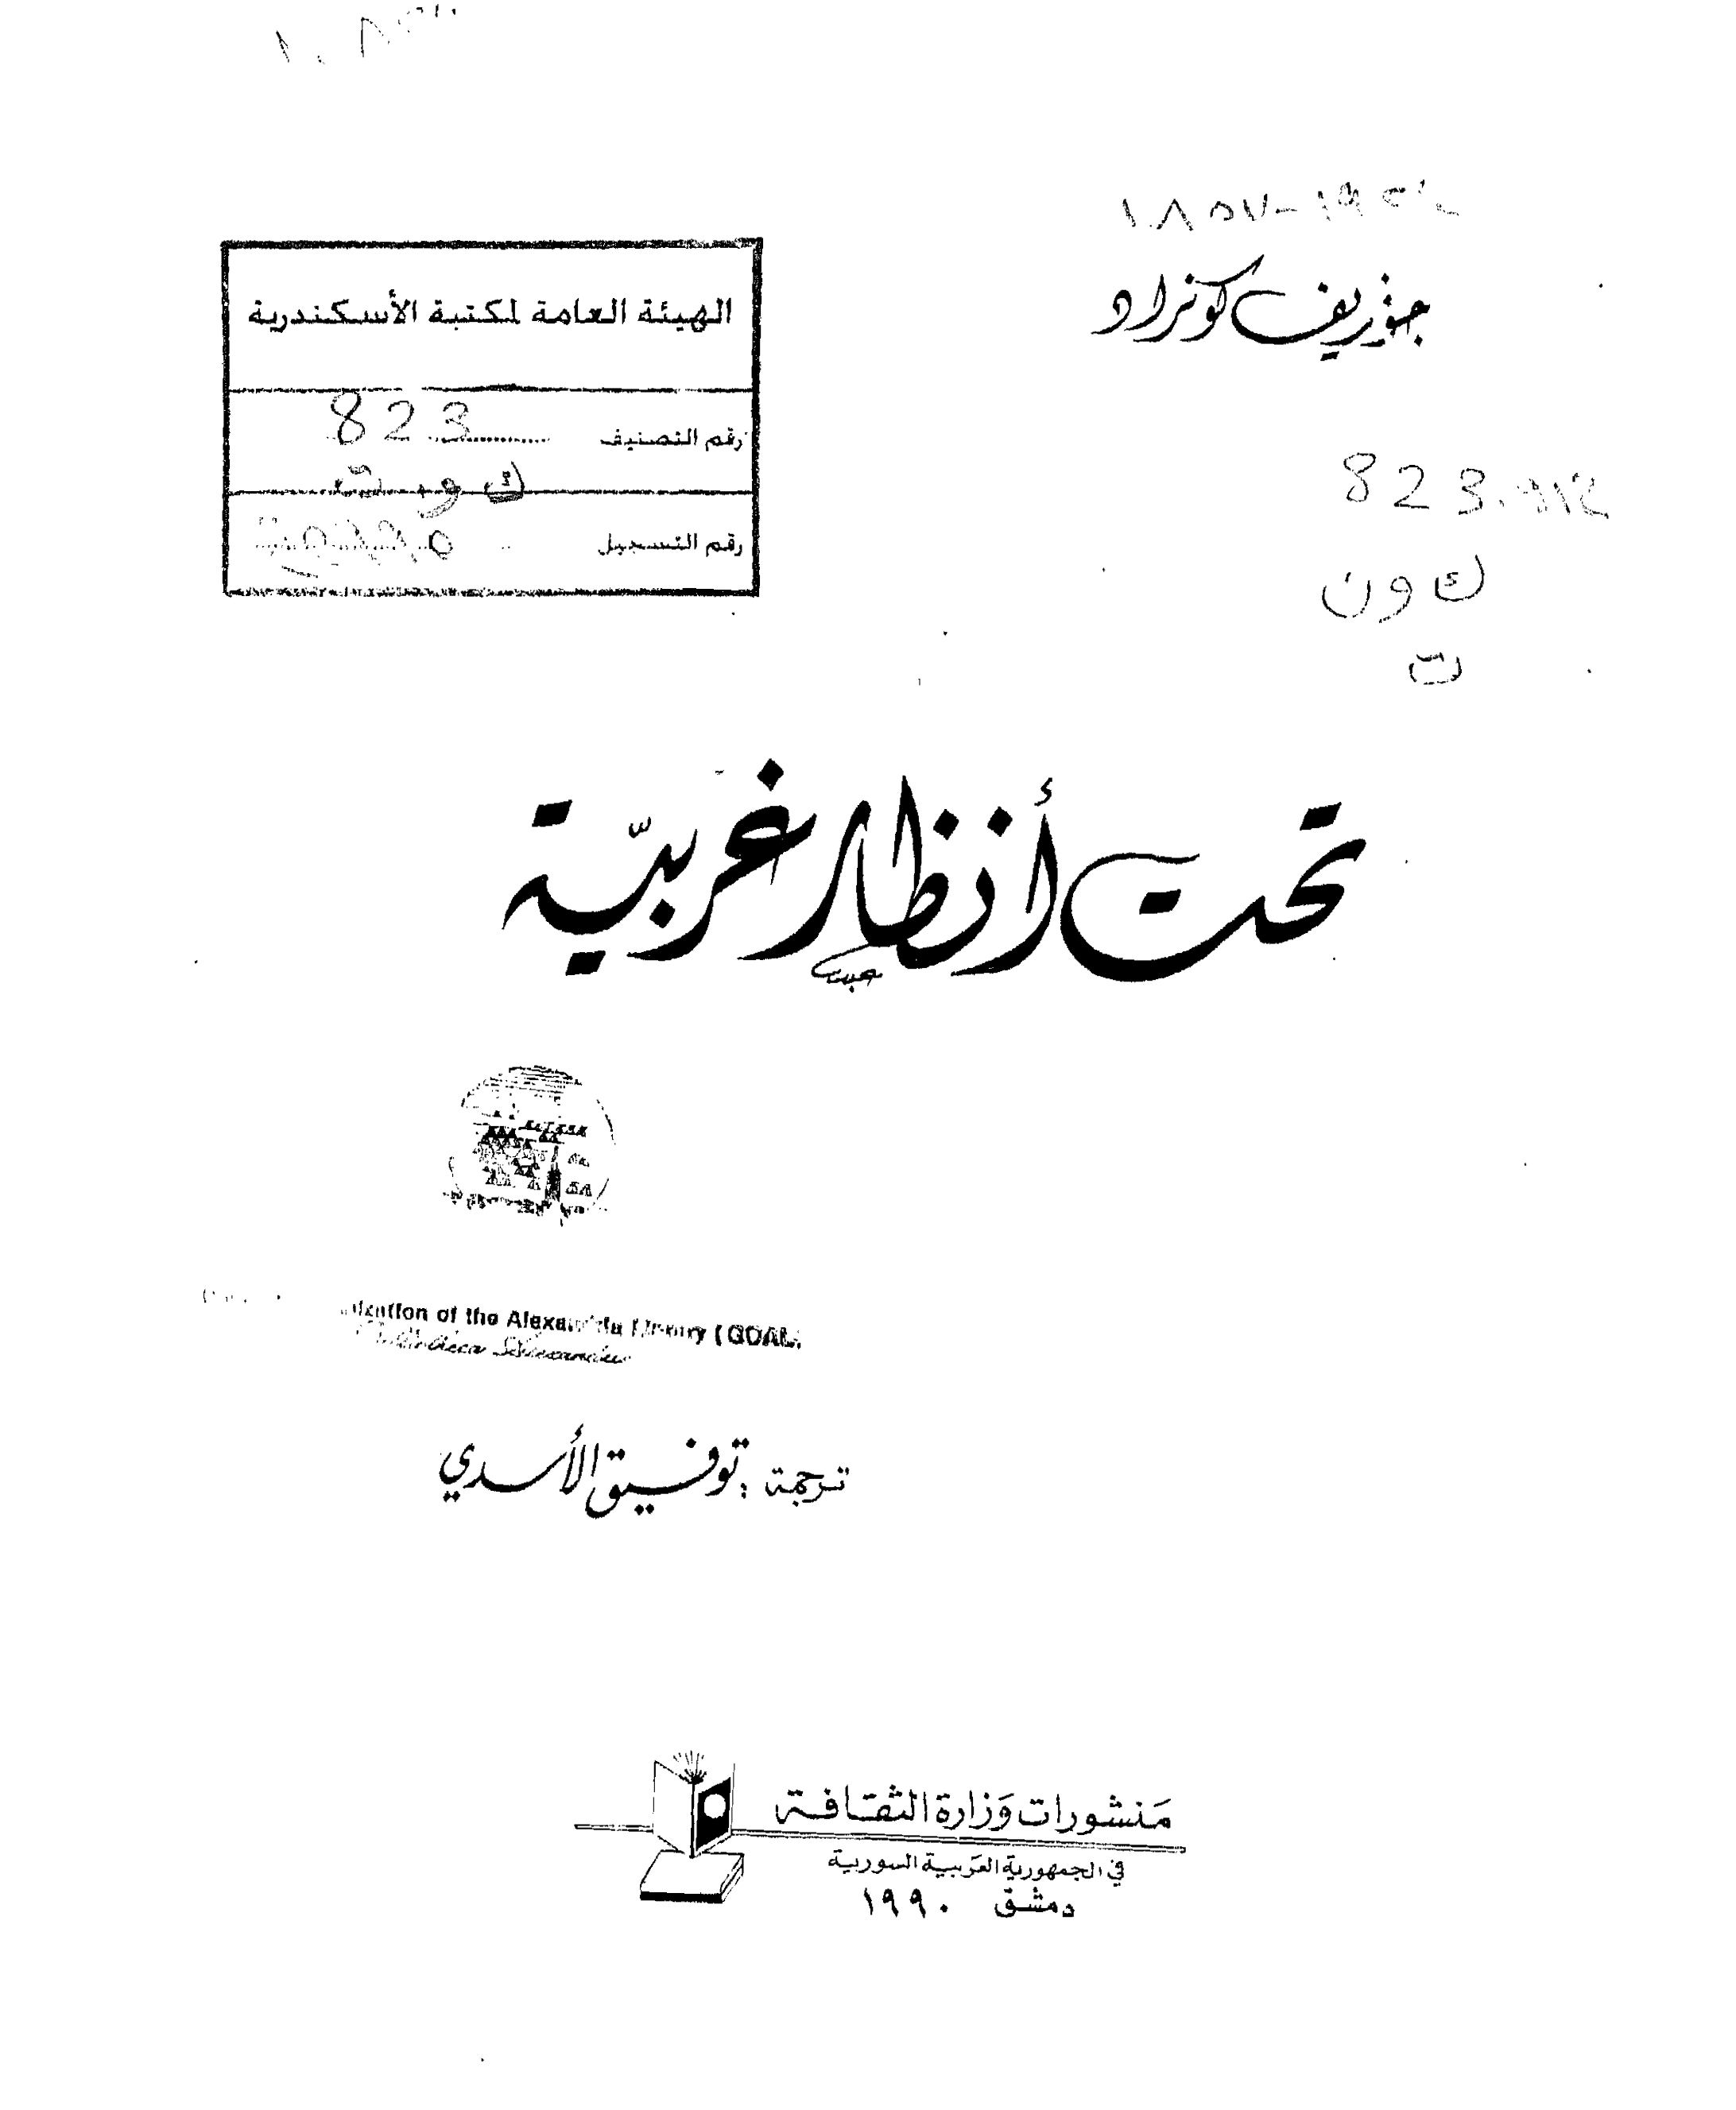 ١٨٥٧-١٩٢٤
جوزيف كونراد
الهيئة العامة لمكتبة الأسكندرية
رقم التصنيف 823
ك و ت
رقم التسجيل
823.912
ك و ن
ت
تحت أنظار غربيّة
ization of the Alexandria Library (GOAL)
Bibliotheca Alexandrina
ترجمة: توفيق الأسدي
مَنشورات وَزارة الثقافة
في الجمهورية العَربية السورية
دمشق ١٩٩٠